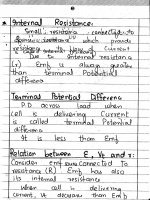 * Internal Resistance:
Small resistance connected to
which provide
resistance to Current
Due to internal resistance
(r), Emf is always greater
than terminal Potential
difference
Terminal Potential Difference
P.D across load when
cell is delivering Current
is called terminal Potential
difference
It is less than Emf
Relation between E, Vt and r:
Consider emf source Connected to
resistance (R) Emf has also
its internal resistance
When cell is delivering
current, Vt decreases than Emf